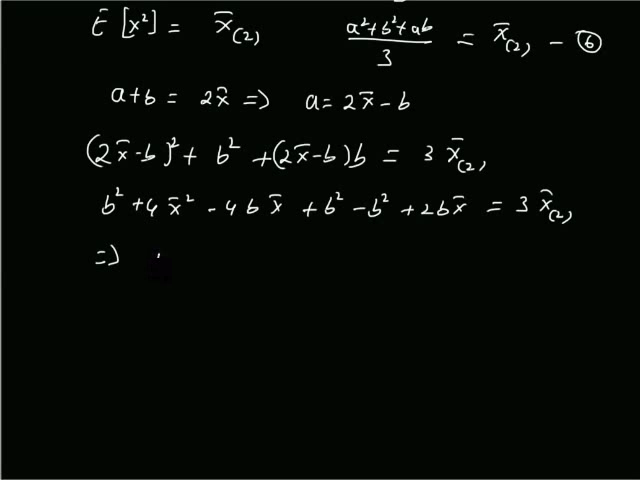 E [x²] = x̄₍₂₎   (a²+b²+ab)/3 = x̄₍₂₎ — ⑥
a+b = 2x̄ => a = 2x̄ - b
(2x̄-b)² + b² + (2x̄-b)b = 3 x̄₍₂₎
b² + 4x̄² - 4bx̄ + b² - b² + 2bx̄ = 3 x̄₍₂₎
=>